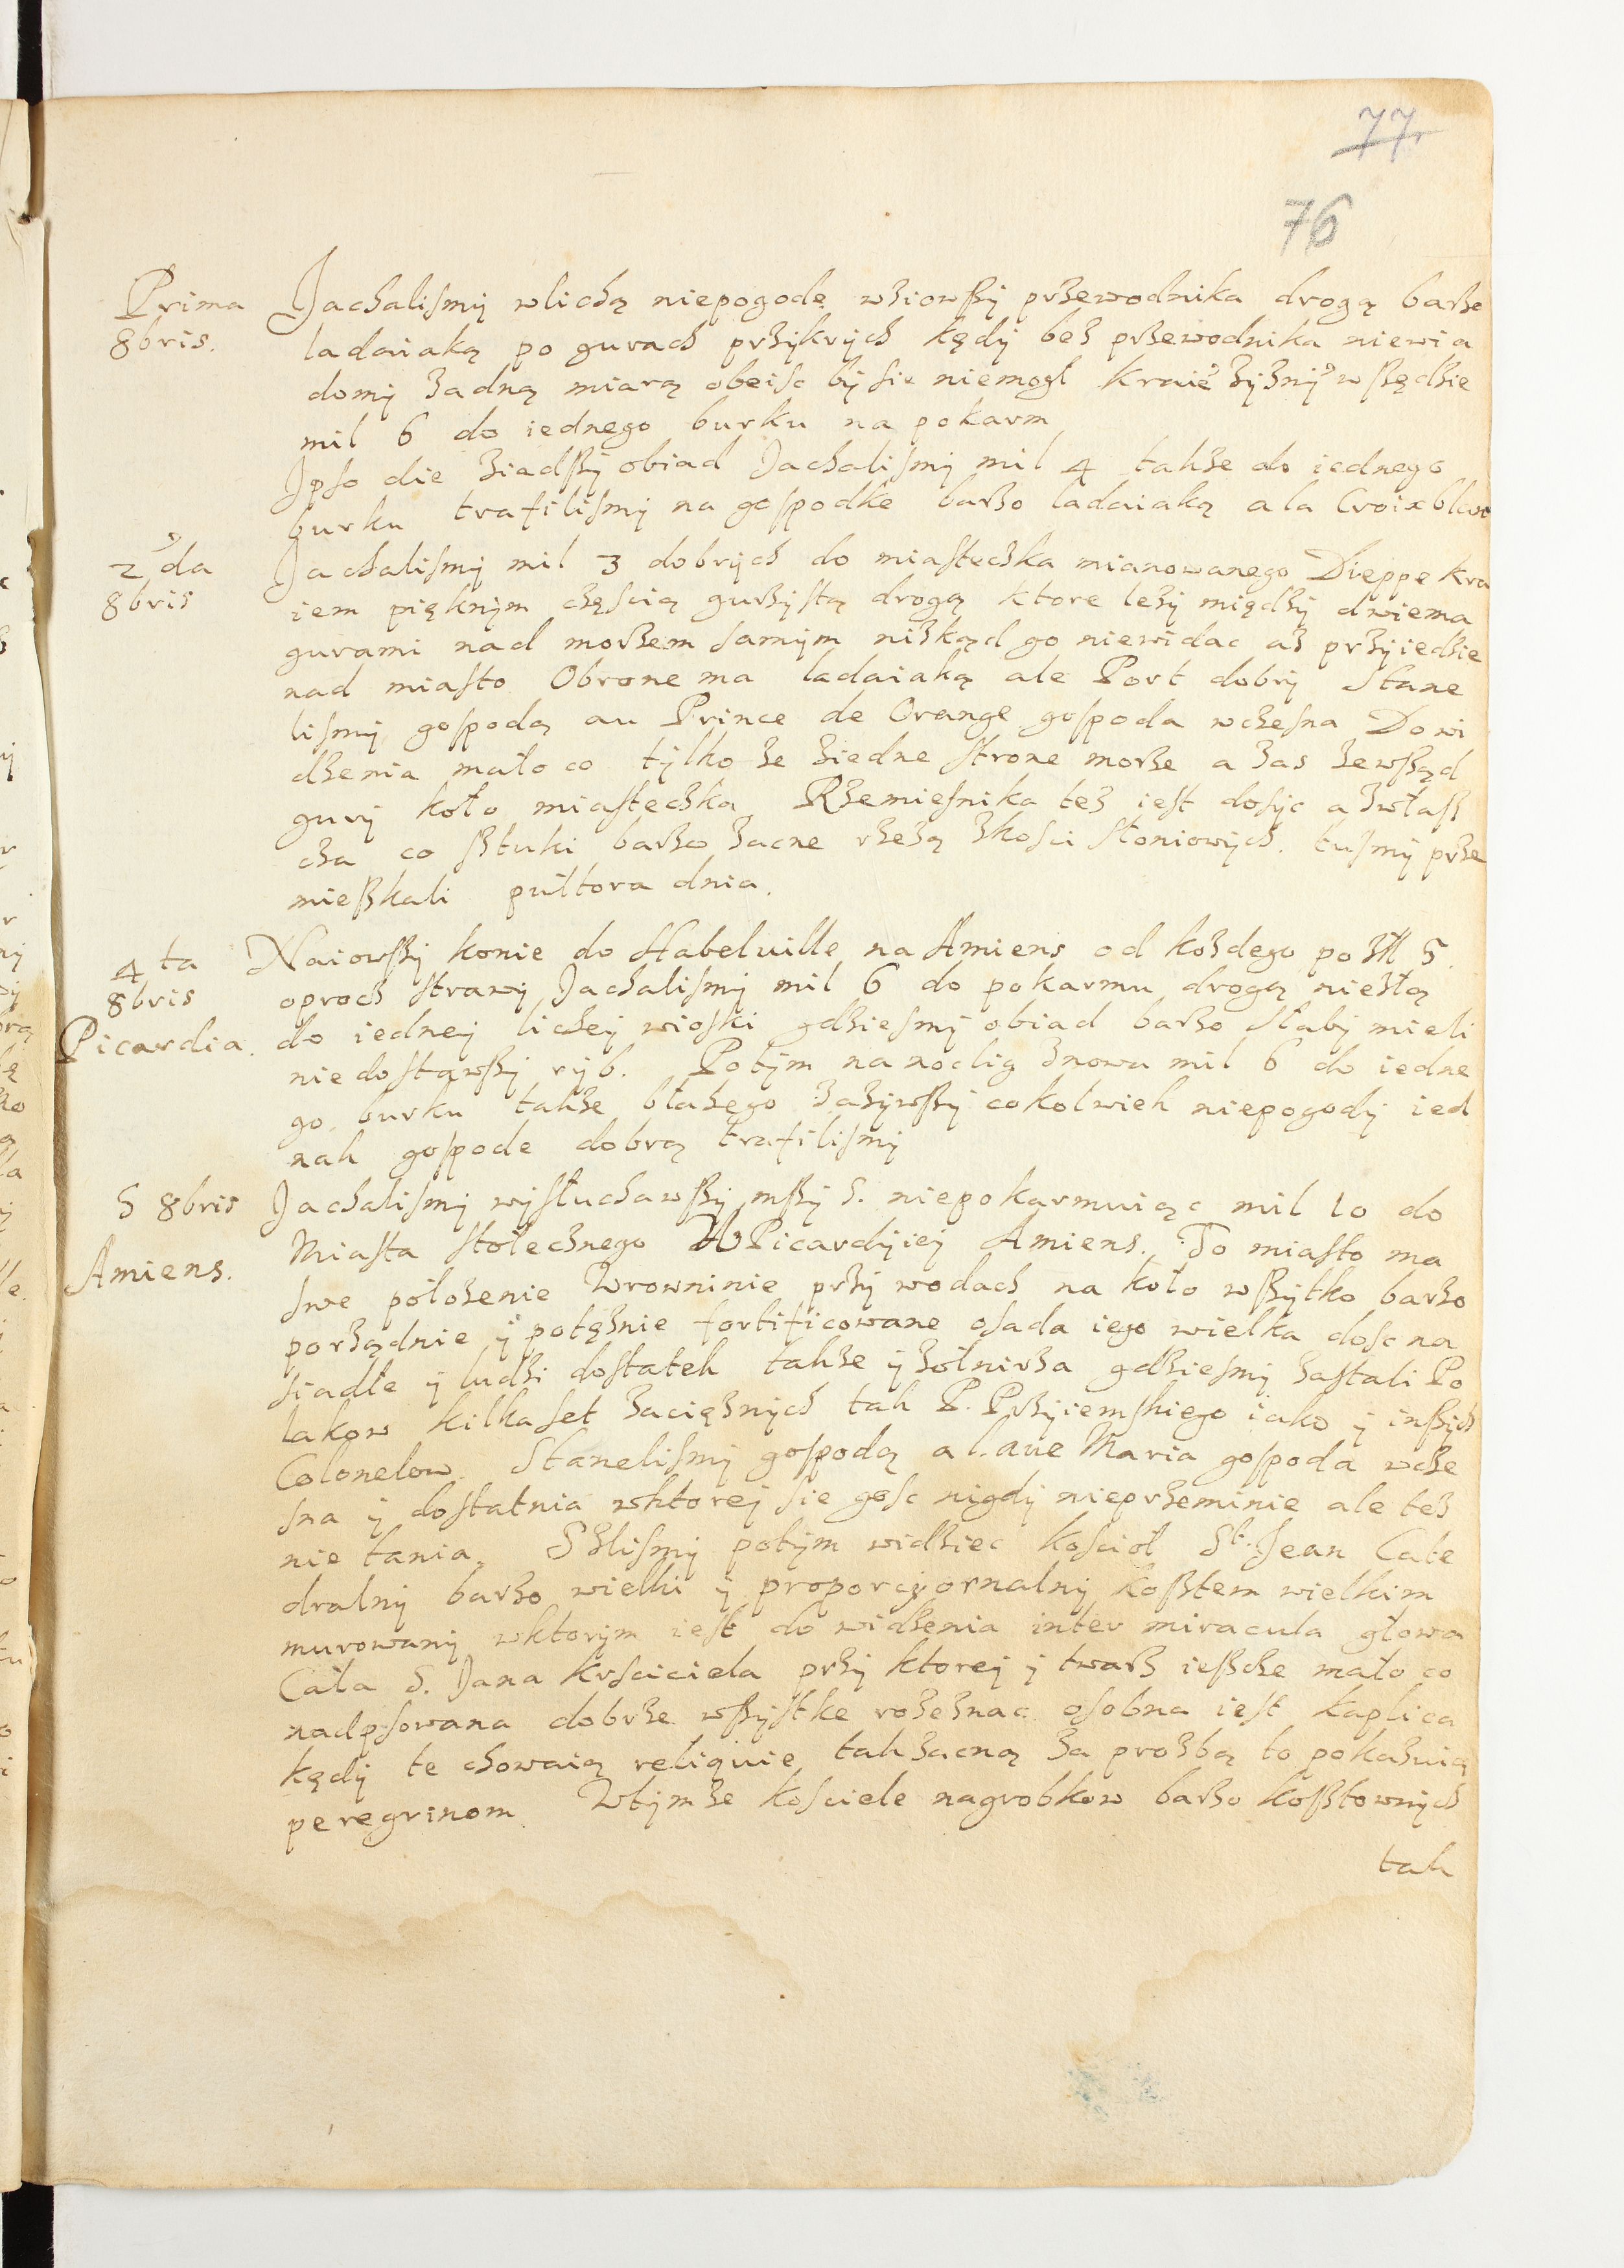 77
76
Prima 8bris.
Jachaliſmy wlichą niepogodę wziowſzy przewodnika drogą barzo
ladaiaką po gurach przykrych kędy bez przewodnika niewia
domy zadną miarą obeiſc by ſie niemogł Kraie zyzny wſzędzie
mil 6 do iednego burku na pokarm
Ipſo die ziadſzy obiad Jachaliſmy mil 4 takze do iednego
burku trafiliſmy na goſpodke barzo ladaiaką a la Croix
2 da 8bris
Jachaliſmy mil 3 dobrych do miaſteczka mianowanego Dieppe kra
iem pięknym częſcią gurzyſtą drogą ktore lezy między dwiema
gurami nad morzem ſamym nizkąd go niewidac az przyiedzie
nad miaſto Obrone ma ladaiaką ale Port dobry Stane
liſmy goſpodą au Prince de Orange goſpoda wczeſna Dowi
dzenia mało co tylko ze ziedne ſtrone morze a zas zewſząd
gury koło miaſteczka Rzemieſnika tez ieſt doſyc a zwłaſz
cza co ſztuki barzo zacne rzezą zkoſci ſłoniowych. tuſmy prze
mieſzkali pułtora dnia.
4 ta 8bris
Picardia.
Naiowſzy konie do Habelville na Amiens od kozdego po zł 5.
oprocz ſtrawy Jachaliſmy mil 6 do pokarmu drogą niezłą
do iedney lichey wioſki gdzieſmy obiad barzo ſłaby mieli
niedoſtawſzy ryb. Potym nanoclig znowu mil 6 do iedne
go burku takze błazego zazywſzy cokolwiek niepogody ied
nak goſpode dobrą trafiliſmy
5 8bris
Amiens.
Jachaliſmy wyſłuchawſzy mſzy S. niepokarmuiąc mil 10 do
Miaſta ſtołecznego W Picardyiey Amiens. To miaſto ma
ſwe położenie Wrowninie przy wodach na koło wſzytko barzo
porządnie y potęznie fortificowane oſada iego wielka doſc na
ſiadłe y ludzi doſtatek takze y zołnirza gdzieſmy zaſtali Po
lakow kilkaſet zaciężnych tak P. Przyiemſkiego iako y inſzych
Colonelow. Staneliſmy goſpodą a l'aue Maria goſpoda wcze
ſna y doſtatnia wktorey ſie goſc nigdy nieprzeminie ale tez
nie tania. Szliſmy potym widziec koſcioł St. Jean Cate
dralny barzo wielki y proporcyornalny koſztem wielkim
murowany wktorym ieſt do widzenia inter miracula głowa
Cała S. Jana krſciciela przy ktorey y twarz ieſzcze mało co
nadpſowana dobrze wſzyſtke rozeznac oſobna ieſt kaplica
kędy te chowaią reliquie takzacną za prozbą to pokazuią
peregrinom. Wtymze koſciele nagrobkow barzo koſztownych
tak